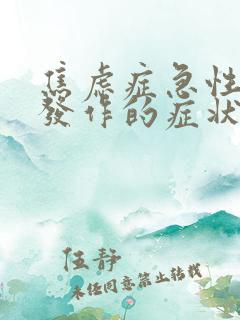 焦虑症急性
发作的症状
伍静
未经同意禁止转载